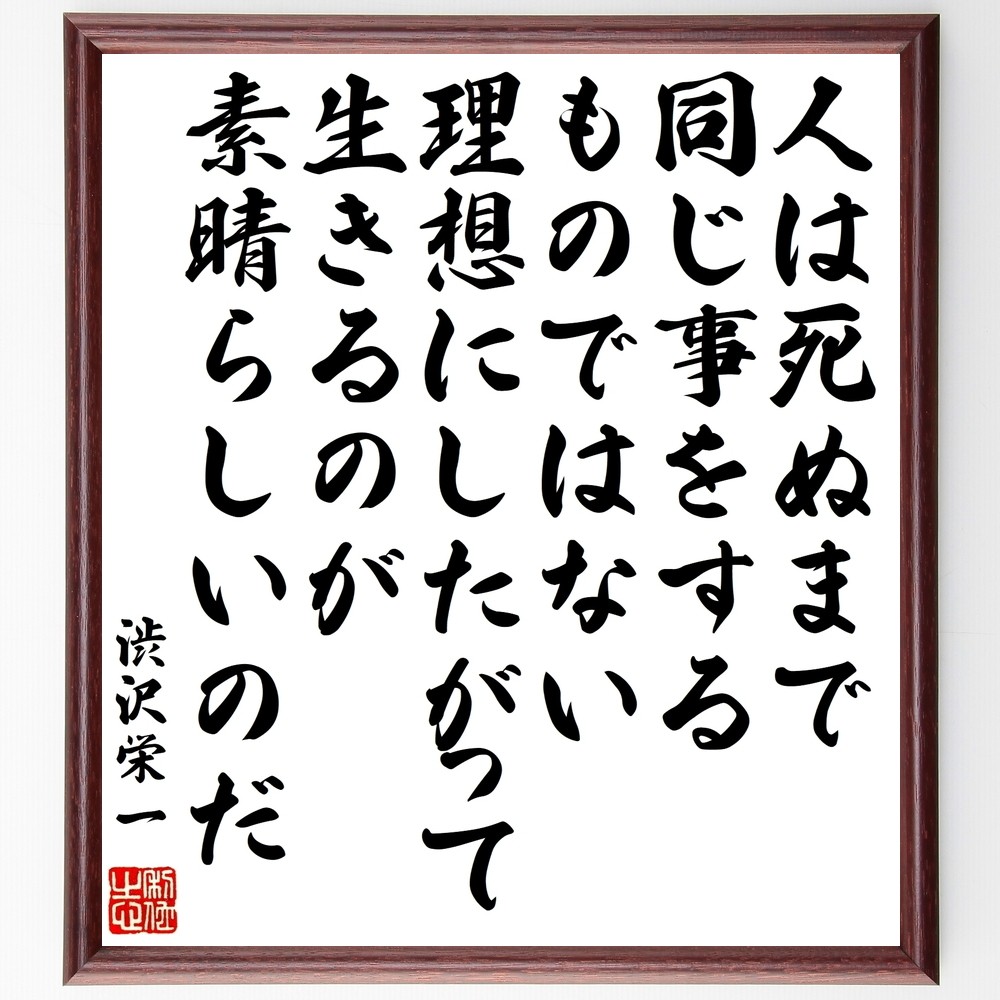 人は死ぬまで
同じ事をする
ものではない
理想にしたがって
生きるのが
素晴らしいのだ
渋沢栄一